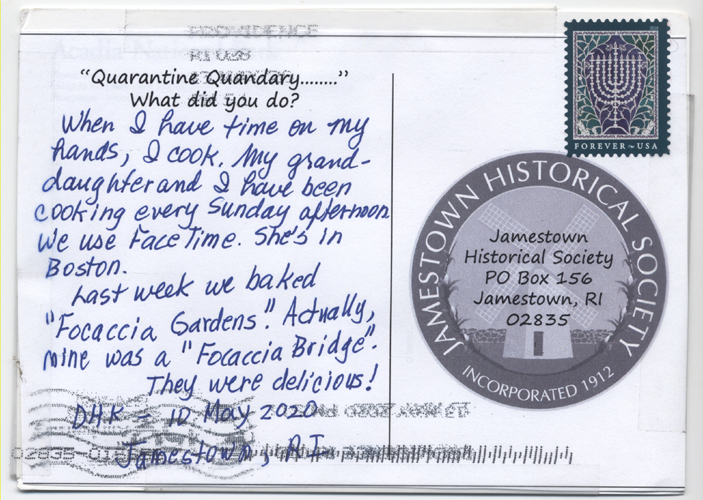 PROVIDENCE
RI 028
"Quarantine Quandary........"
What did you do?
When I have time on my
hands, I cook. My grand-
daughter and I have been
cooking every Sunday afternoon
We use FaceTime. She's in
Boston.
Last week we baked
"Focaccia Gardens". Actually,
mine was a "Focaccia Bridge".
They were delicious!
DHK – 10 May 2020
Jamestown, RI
FOREVER USA
JAMESTOWN HISTORICAL SOCIETY
Jamestown
Historical Society
PO Box 156
Jamestown, RI
02835
INCORPORATED 1912